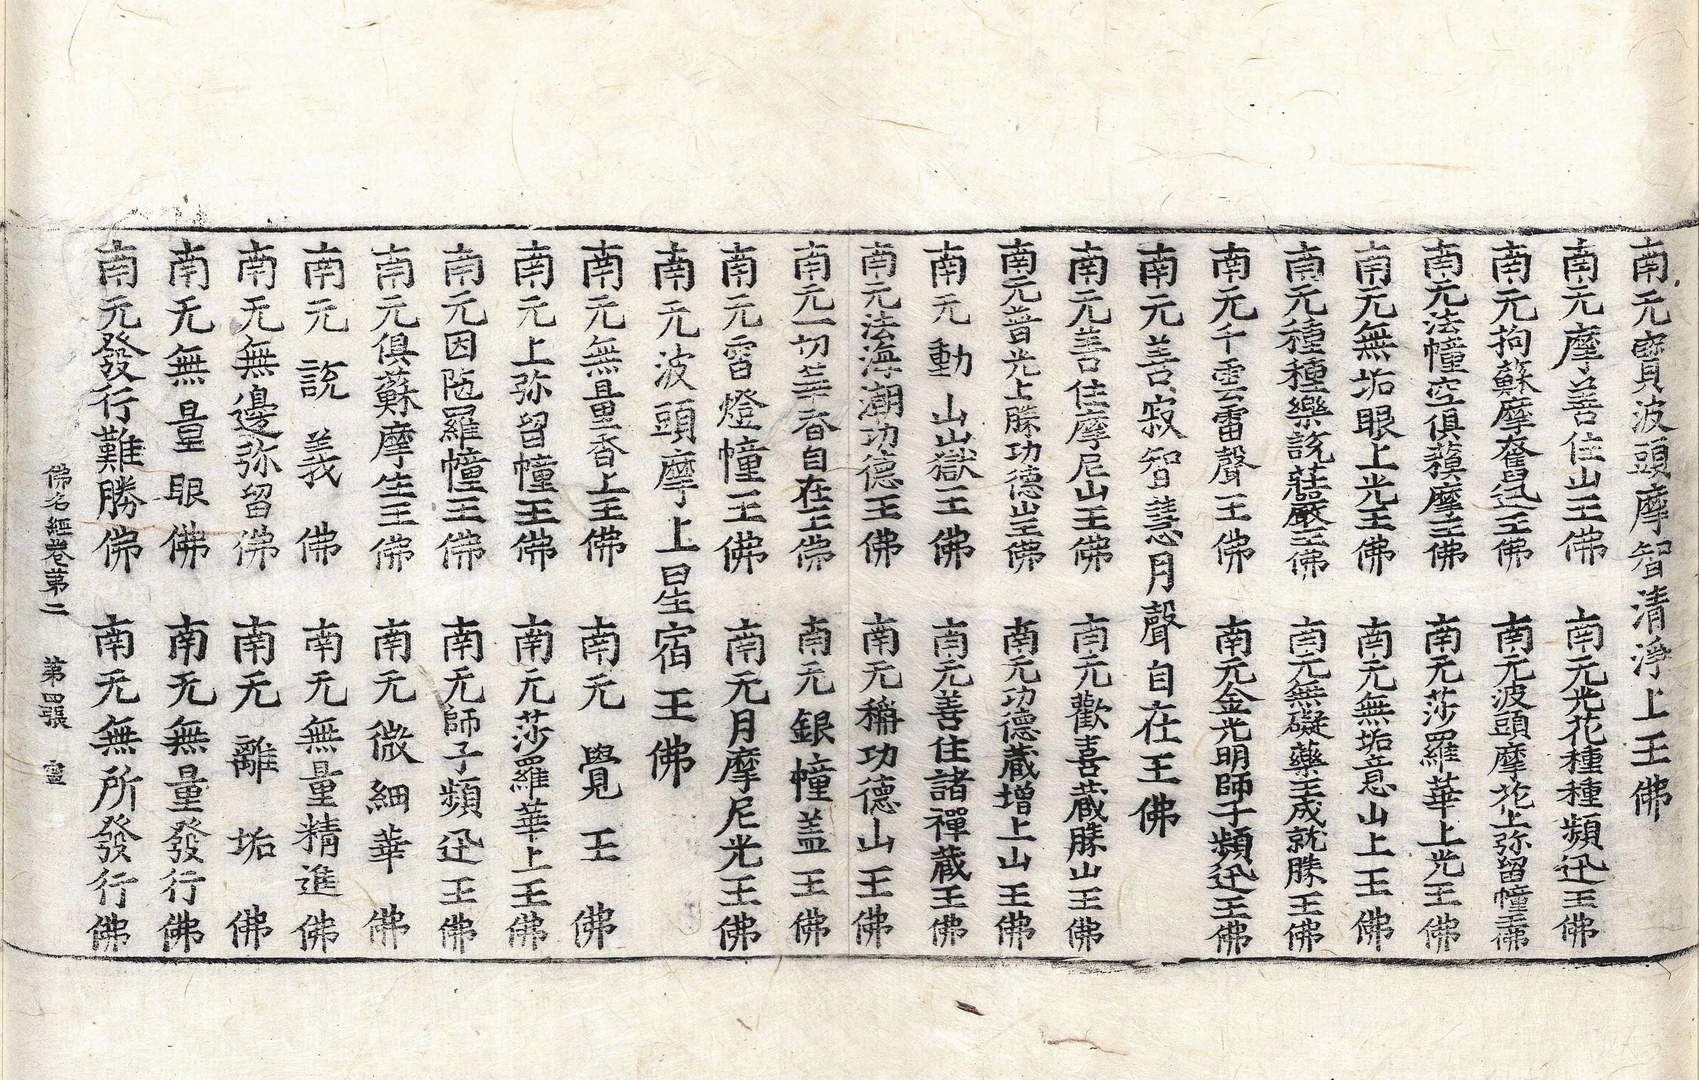 南无寶波頭摩智清淨上王佛
南无摩善住山王佛 南无光花種種頻迅王佛
南无拘蘇摩奮迅王佛 南无波頭摩花上弥留幢王佛
南无法幢空俱蘓摩王佛 南无莎羅華上光王佛
南无無垢眼上光王佛 南无無垢意山上王佛
南无種種樂說莊嚴王佛 南无無礙藥王成就勝王佛
南无千雲雷聲王佛 南无金光明師子頻迅王佛
南无善寂智慧月聲自在王佛
南无善住摩尼山王佛 南无歡喜蔵勝山王佛
南无普光上勝功德山王佛 南无功德蔵增上山王佛
南无動山嶽王佛 南无善住諸禪蔵王佛
南无法海潮功德王佛 南无稱功德山王佛
南无一切華香自在王佛 南无銀幢盖王佛
南无雷燈幢王佛 南无月摩尼光王佛
南无波頭摩上星宿王佛
南无無量香上王佛 南无覺王佛
南无上弥留幢王佛 南无莎羅華上王佛
南无因陁羅幢王佛 南无師子頻迅王佛
南无俱蘇摩生王佛 南无微細華佛
南无說義佛 南无無量精進佛
南无無邊弥留佛 南无離垢佛
南无無量眼佛 南无無量發行佛
南无發行難勝佛 南无無所發行佛
佛名經卷第二 第四張 靈